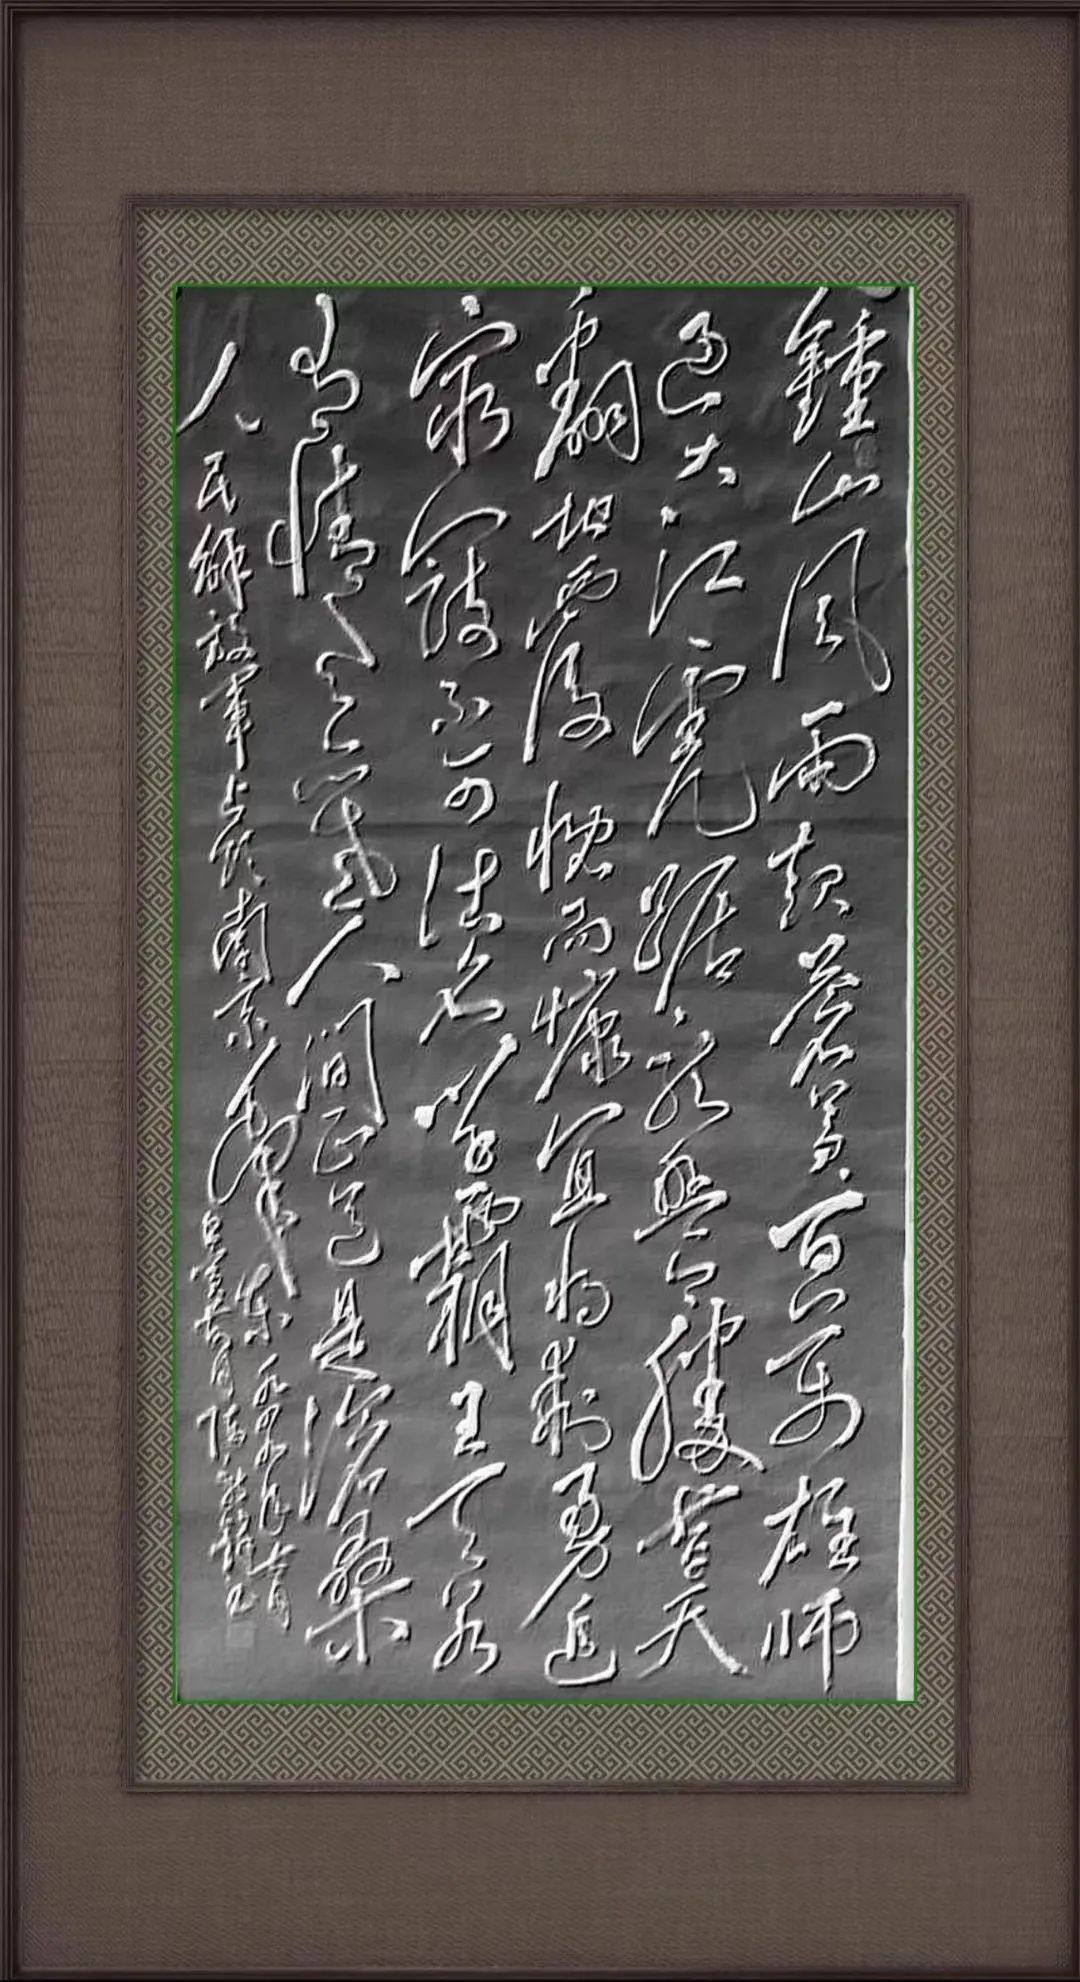 鍾山风雨起蒼黄百万雄师
过大江虎踞龙盘今勝昔天
翻地覆慨而慷宜将剩勇追
穷寇不可沽名学霸王天若
有情天亦老人间正道是滄桑
人民解放军占领南京
毛泽东
一九四九年四月